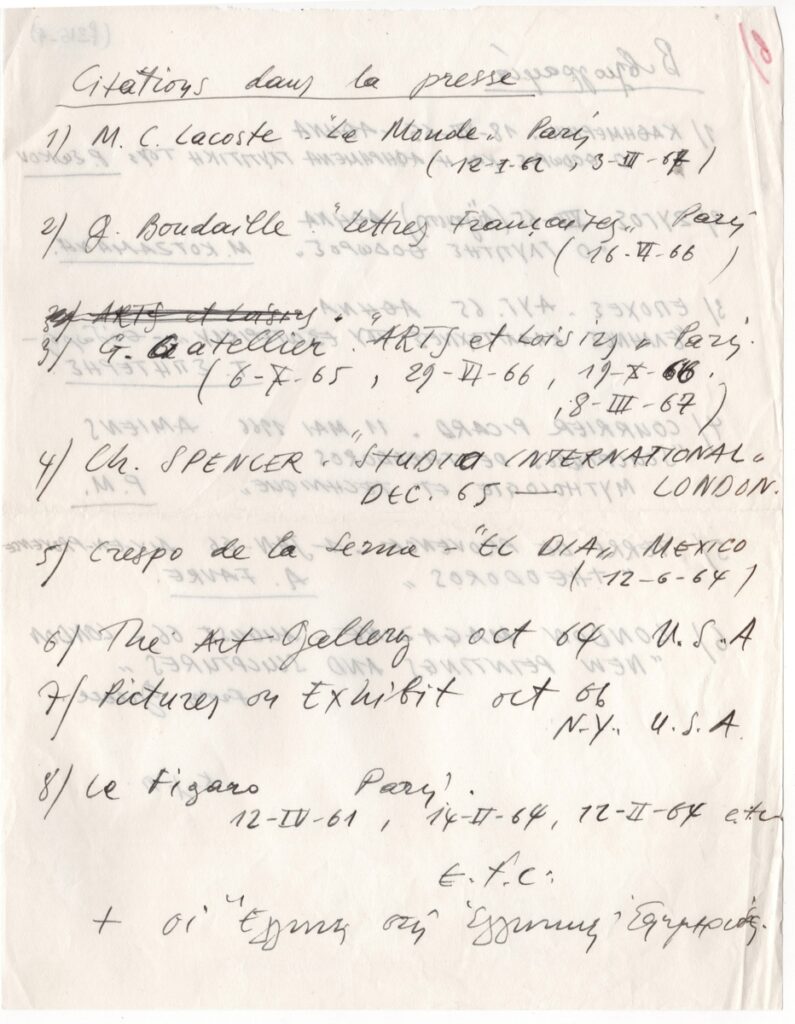 Citations dans la presse
1) M. C. Lacoste - "Le Monde" Paris
(12-I-62, 3-III-67)
2) G. Boudaille. "Lettres Françaises" Paris
(16-VI-66)
ARTS et Loisirs.
3) G. Gatellier. "ARTS et Loisirs" Paris.
(6-X-65, 29-VI-66, 19-X-66.
, 8-III-67)
4) Ch. SPENCER - "STUDIO INTERNATIONAL"
DEC. 65 — LONDON.
5) Crespo de la Serna - "EL DIA" MEXICO
(12-6-64)
6) The Art Gallery oct 64 U.S.A
7) Pictures on Exhibit oct 66
N.Y. U.S.A.
8) Le Figaro Paris.
12-IV-61, 14-II-64, 12-II-64 etc
E.T.C.
+ οι Έλληνες στις Ελληνικές Εφημερίδες.